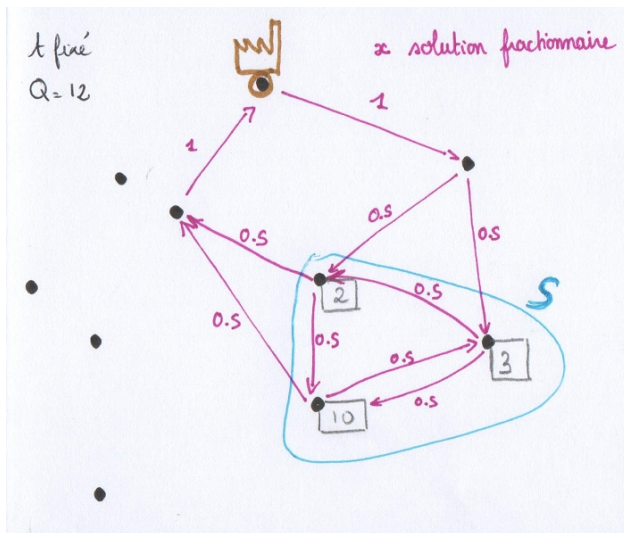 t fixé
Q=12
x solution fractionnaire
1
1
0.5
0.5
0.5
0.5
0.5
2
0.5
0.5
3
0.5
10
S